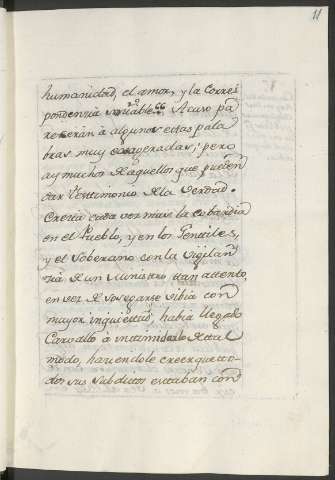 11
humanidad, el amor, y la Corres
pondenzia 20 66 Acaso pa
reserán à algunos estas pala
bras muy exageradas; pero
ay muchos de aquellos que pueden
dar Testimonio de la Verdad.
Crecia cada vez mas la cobardia
en el Pueblo, y en los Gentiles,
y el Soberano con la Vigilan
zia de un Ministro ttan attento,
en vez de sosegarse vibia con
mayor inquiettud; había llegado
Carvallo à intimidarlo de tal
modo, haziendole creer que tto
dos sus subditos estaban con